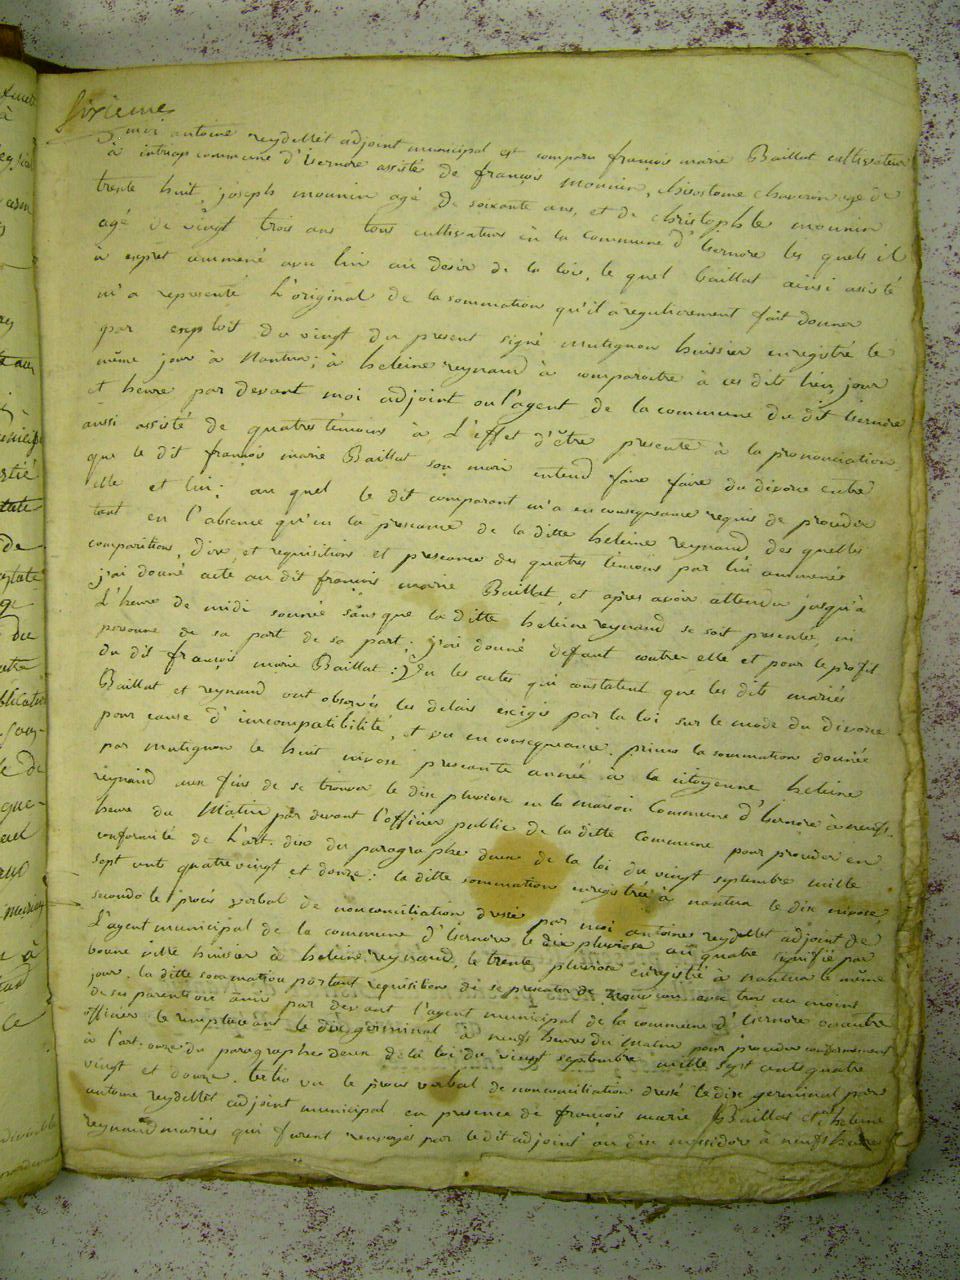 Sixieme
moi antoine reydellet adjoint municipal est comparu françois marie Baillat cultivateur
à intriap commune d'Isernore assisté de françois mounin, chisostome chaveron agé de
trente huit, joseph mounin agé de soixante ans, et de christophle mounin
agé de vingt trois ans tous cultivateurs en la commune d'Isernore les quels il
a exprès ammené avu lui au desir de la loi, le quel baillat ainsi assisté
m'a representé L'original de la sommation qu'il a regulierement fait donner
par exploit du vingt du present signé mutignon huissier enregistré le
même jour à Nantua; à heleine reynaud à comparoitre à ces dits lieu, jour
et heure par devant moi adjoint ou l'agent de la commune du dit isernore
aussi assisté de quatres temoins à L'effet d'être presente à la prononciation
que le dit françois marie Baillat son mari entend faire faire du divorce entre
elle et lui; au quel le dit comparant m'a en consequance requis de proceder
tant en l'absence qu'en la prescance de la ditte heleine reynaud des quelles
comparitions, dire, et requisitions et prescance des quatres temoins par lui ammenés
j'ai douné acte au dit françois marie Baillat, et apres avoir attendu jusqu'à
L'heure de midi sounée sans que la ditte heleine reynaud se soit presentée, ni
persoune de sa part de sa part; j'ai douné defaut contre elle et pour le profit
du dit françois marie Baillat: Vu les actes qui constatent que les dits mariés
Baillat et reynaud ont observés les delais exigis par la loi sur le mode du divorce
pour cause d'incompatibilité, et vu en consequance. primo la sommation dounée
par mutignon le huit nivose prescante année à la citoyenne heleine
reynaud aux fins de se trouver le dix pluviose en la maison Commune d'Isernore à neufs
heure du Matin par devant l'officier public de la ditte Commune pour proceder en
conformité de L'art. dix du paragraphe deux de la loi du vingt septembre mille
sept cents quatre vingt et douze: la ditte sommation enregistrée à nantua le dix nivose
secondo le procés verbal de nonconciliation dressé par moi antoine reydellet adjoint de
L'agent municipal de la commune d'Isernore le dix pluviose au quatre signifié par
bonne ville huissier à heleine reynaud, le trente pluviose enregistré à nantua le même
jour. la ditte sommation portant requisition de se presenter de avec trois au moins
de ses parents ou amis par devant l'agent municipal de la commune d'Isernore ou autre
officier le remplaceant le dix germinal à neufs heures du matin pour proceder conformement
à l'art. onze du paragraphe deux de la loi du vingt septembre mille sept cents quatre
vingt et douze. tertio vu le procés verbal de nonconciliation dressé le dix germinal par
antoine reydellet adjoint municipal en presence de françois marie Baillat et heleine
reynaud mariés qui furent renvoyés par le dit adjoint au dix messidor à neufs heure